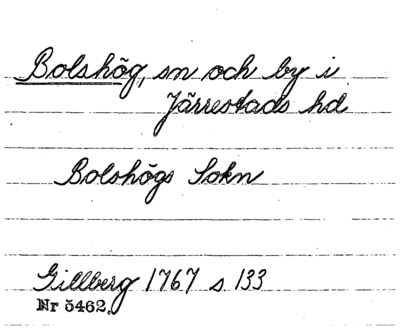 Bolshög, sn och by i
Järrestads hd
Bolshögs Sokn
Gillberg 1767 s 133
Nr 5462.